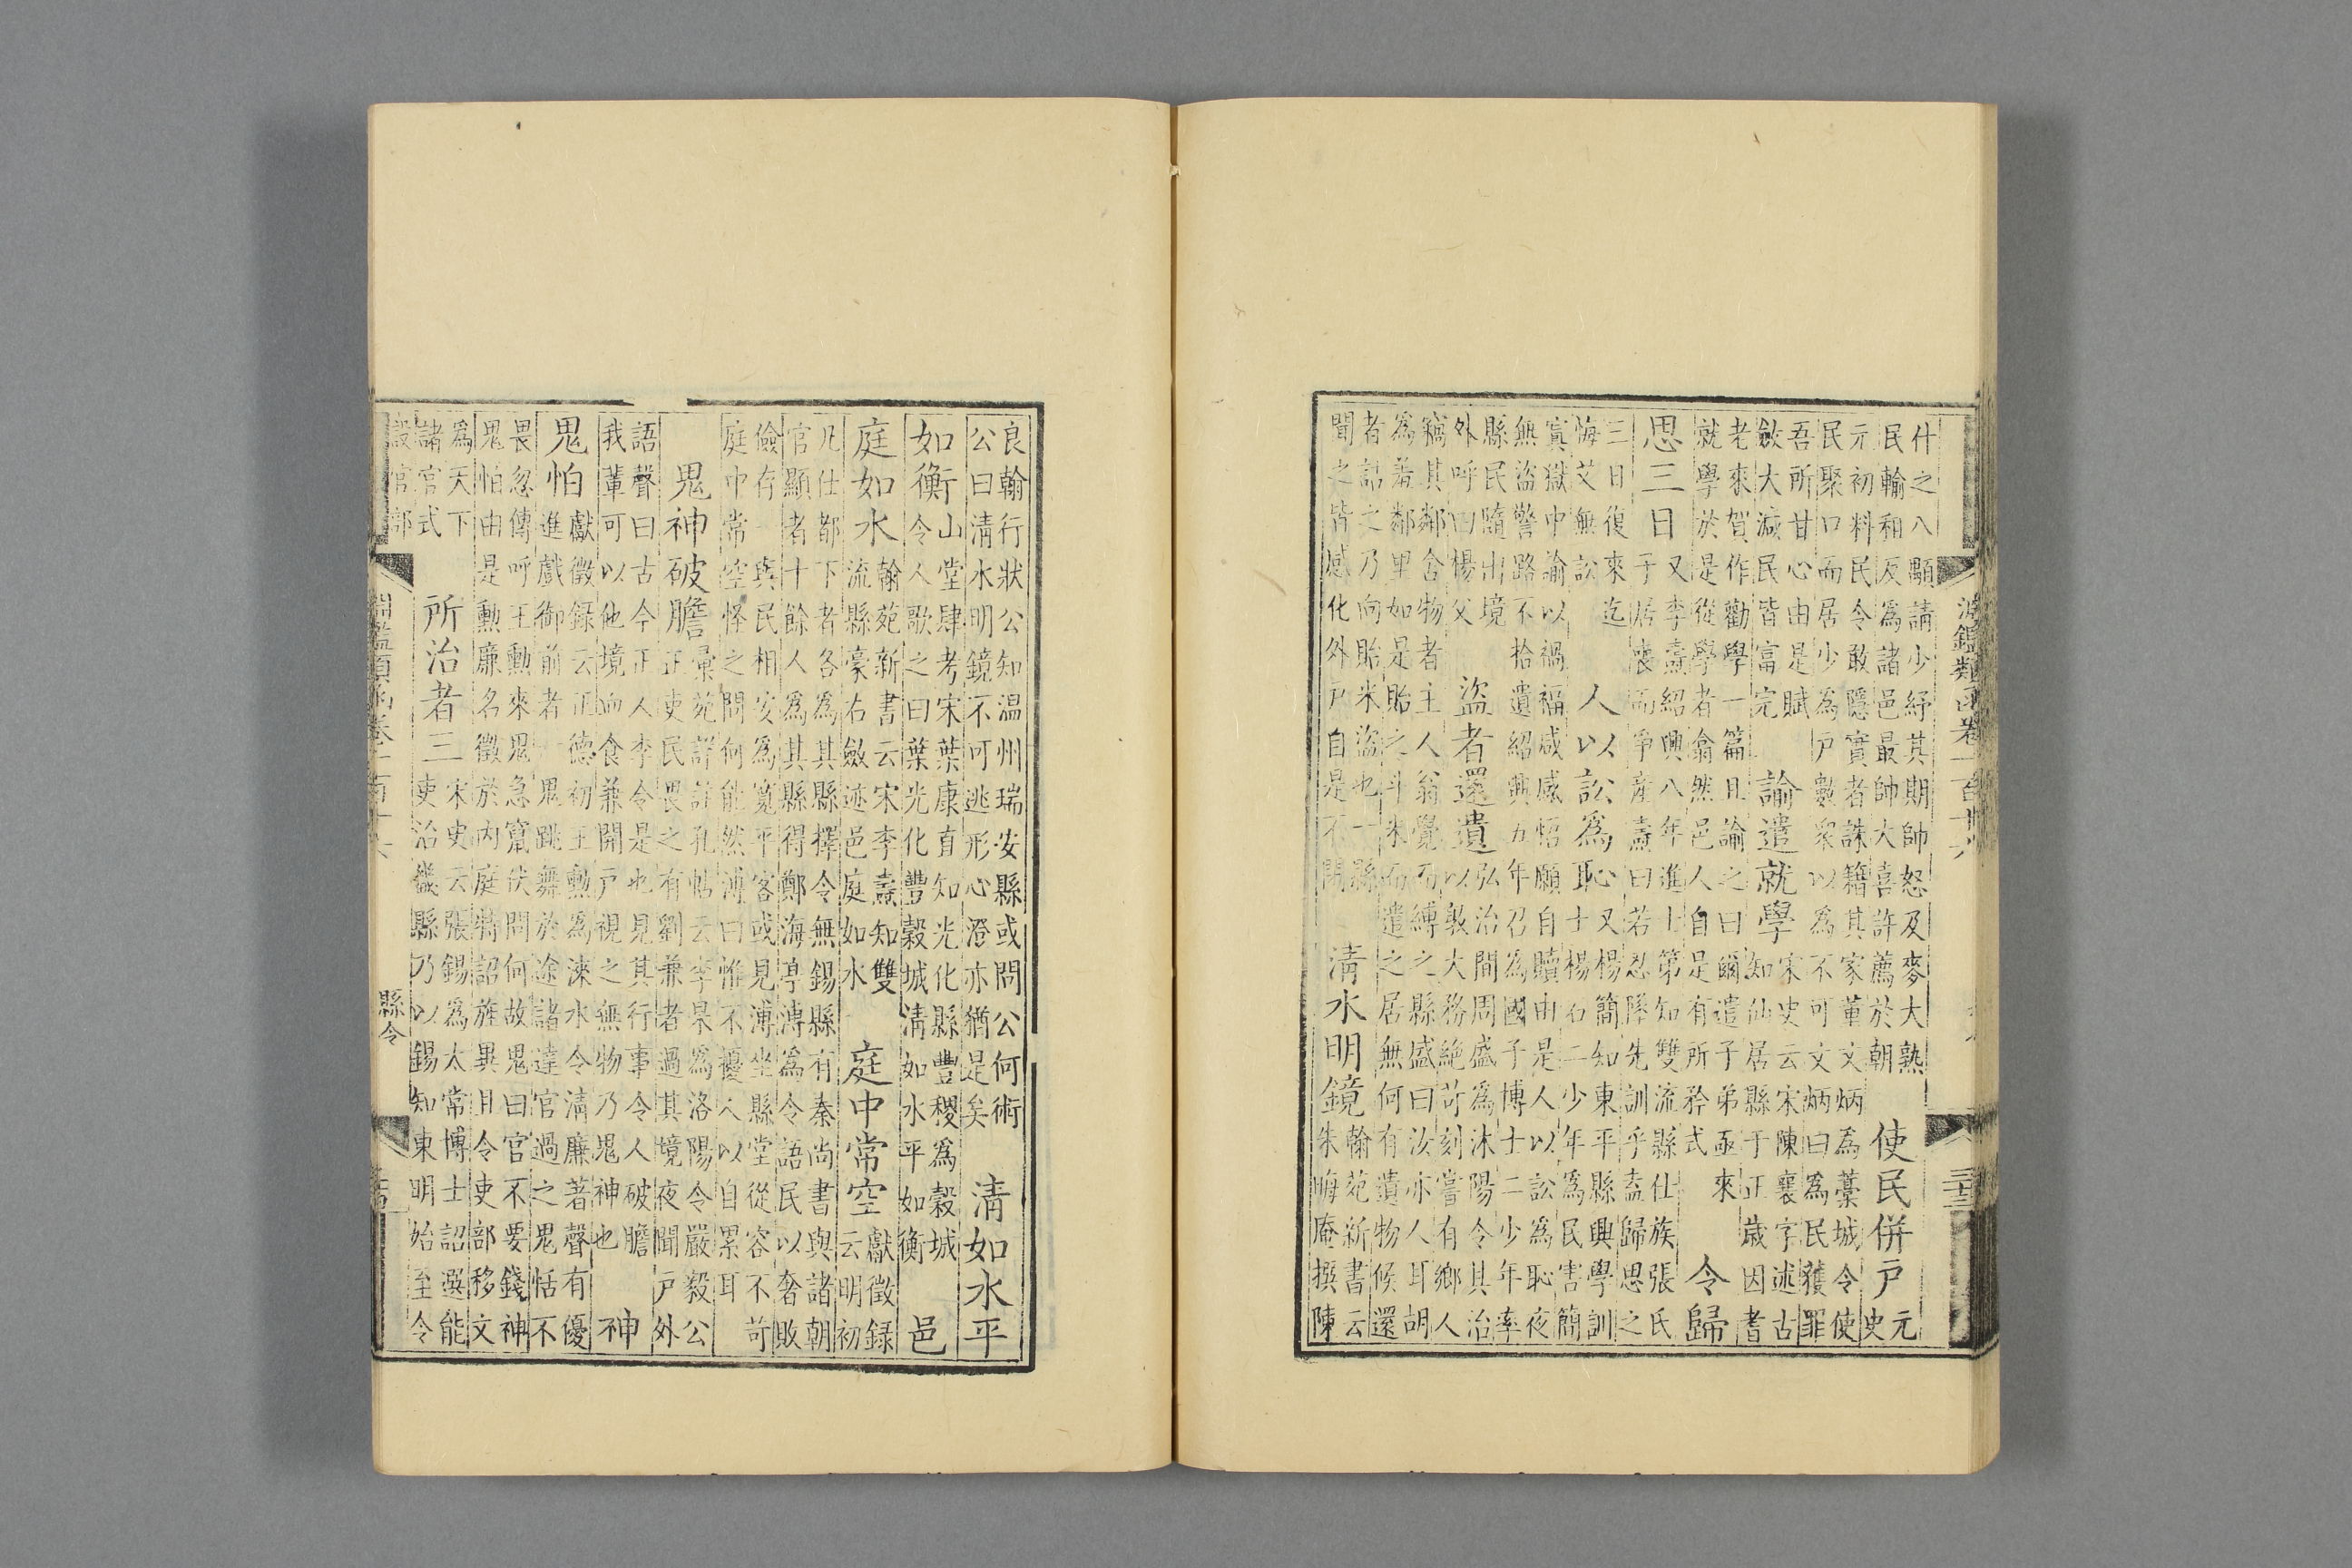 淵鑑類函卷一百十六
什之八顯請少紓其期帥怒及麥大熟
民輸和反爲諸邑最帥大喜許薦於朝
使民併戶
元
史
元初料民令敢隱實者誅籍其家董文炳爲藁城令使
民聚口而居少爲戶數衆以爲不可文炳曰爲民獲罪
吾所甘心由是賦
斂大減民皆富完
諭遣就學
宋史云宋陳襄字述古
知仙居縣于正歲因耆
老來賀作勸學一篇且諭之曰爾遣子弟亟來
就學於是從學者翕然邑人自是有所矜式
令歸
思三日
又李燾紹興八年進士第知雙流縣仕族張氏
于居喪而爭產燾曰若忍墜先訓乎盍歸思之
三日復來迄
悔艾無訟
人以訟爲恥
又楊簡知東平縣興學訓
士楊石二少年爲民害簡
寘獄中諭以禍福咸感悟願自贖由是人以訟爲恥夜
無盜警路不拾遺紹興五年召爲國子博士二少年率
縣民隨出境
外呼曰楊父
盜者還遺
弘治間周盛爲沭陽令其治
以敦大務絶苛刻嘗有鄉人
竊其鄰舍物者主人翁覺而縛之縣盛曰汝亦人耳胡
爲羞鄰里如是貽之斗米而遣之居無何有遺物候還
者詰之乃向貽米盜也一縣
聞之皆感化外戶自是不閉
清水明鏡
翰苑新書云
朱晦庵撰陳
良翰行狀公知温州瑞安縣或問公何術
公曰清水明鏡不可逃形心澄亦猶是矣
清如水平
如衡
山堂肆考宋葉康直知光化縣豐稷爲穀城
令人歌之曰葉光化豐穀城清如水平如衡
邑
庭如水
翰苑新書云宋李燾知雙
流縣豪右斂迹邑庭如水
庭中常空
獻徵録
云明初
凡仕都下者各爲其縣擇令無錫縣有秦尚書與諸朝
官顯者十餘人爲其縣得鄭海亭溥爲令語民以奢敗
儉存一與民相安爲寬平客或見溥坐縣堂從容不苛
庭中常空怪之問何能然溥曰惟不擾人以自累耳
鬼神破膽
彙苑詳註孔帖云李杲爲洛陽令嚴毅公
正吏民畏之有劉兼者過其境夜聞戶外
語聲曰古今正人李令是也見其行事令人破膽
我輩可以他境而食兼開戶視之無物乃鬼神也
神
鬼怕
獻徵録云正德初王勳爲淶水令清廉著聲有優
進戲御前者一鬼跳舞於途諸達官過之鬼恬不
畏忽傳呼王勳來鬼急竄伏問何故鬼曰官不要錢神
鬼怕由是勳廉名徵於內庭特詔旌異且令吏部移文
爲天下
諸官式
所治者三
宋史云張錫爲太常博士詔選能
吏治畿縣乃以錫知東明始至令
縣令